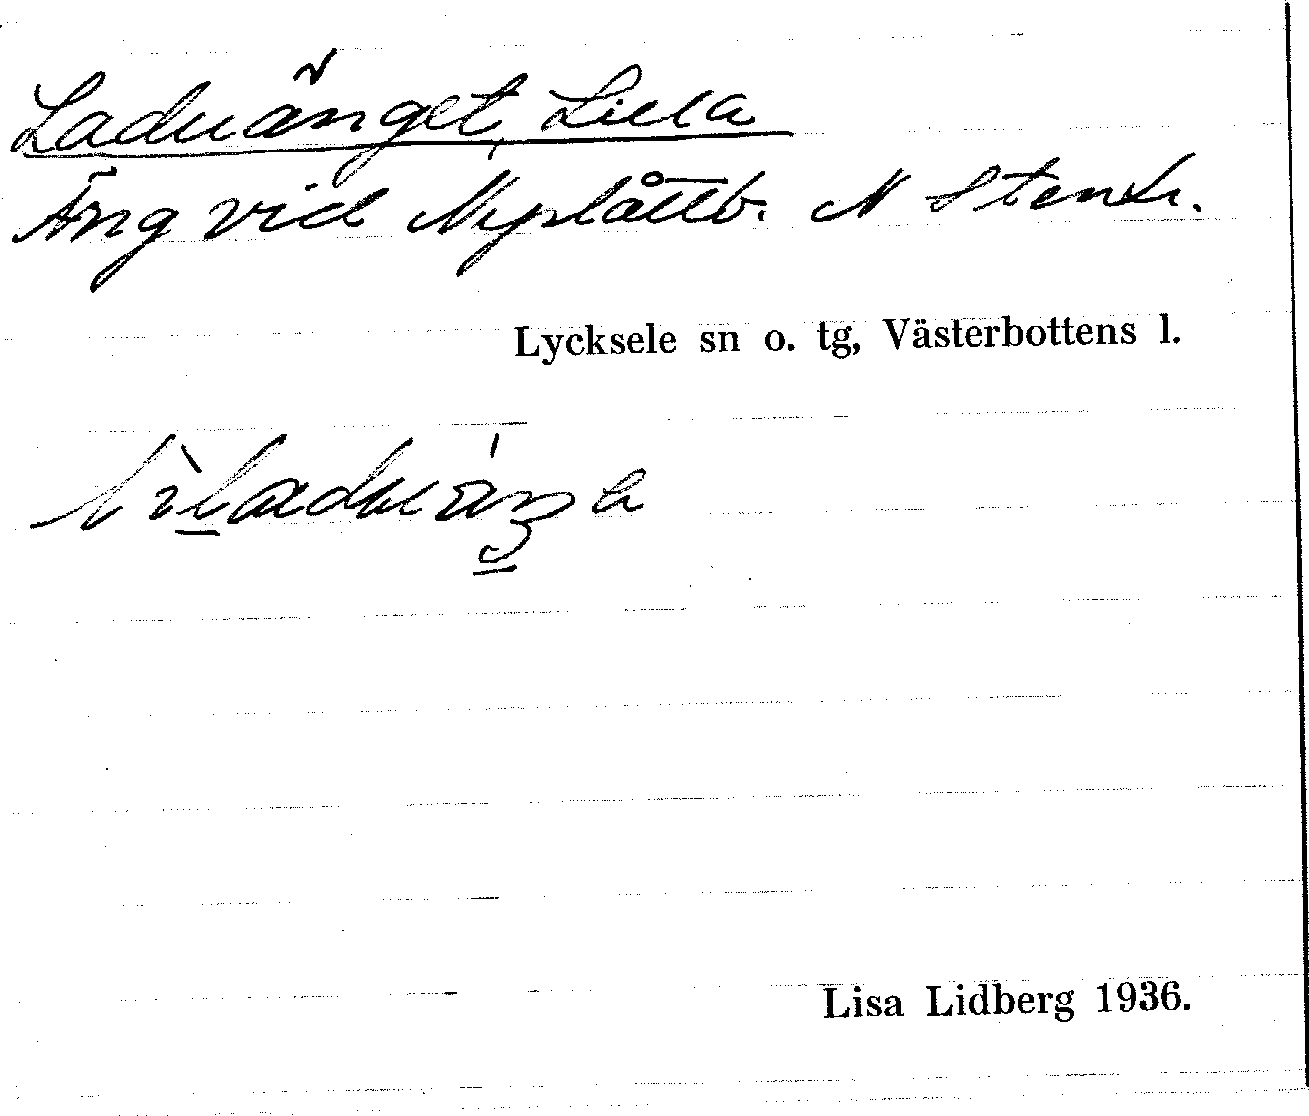 Laduänget, Lilla
Äng vid Nyplåttb. N Stentr.
Lycksele sn o. tg, Västerbottens l.
Lisa Lidberg 1936.